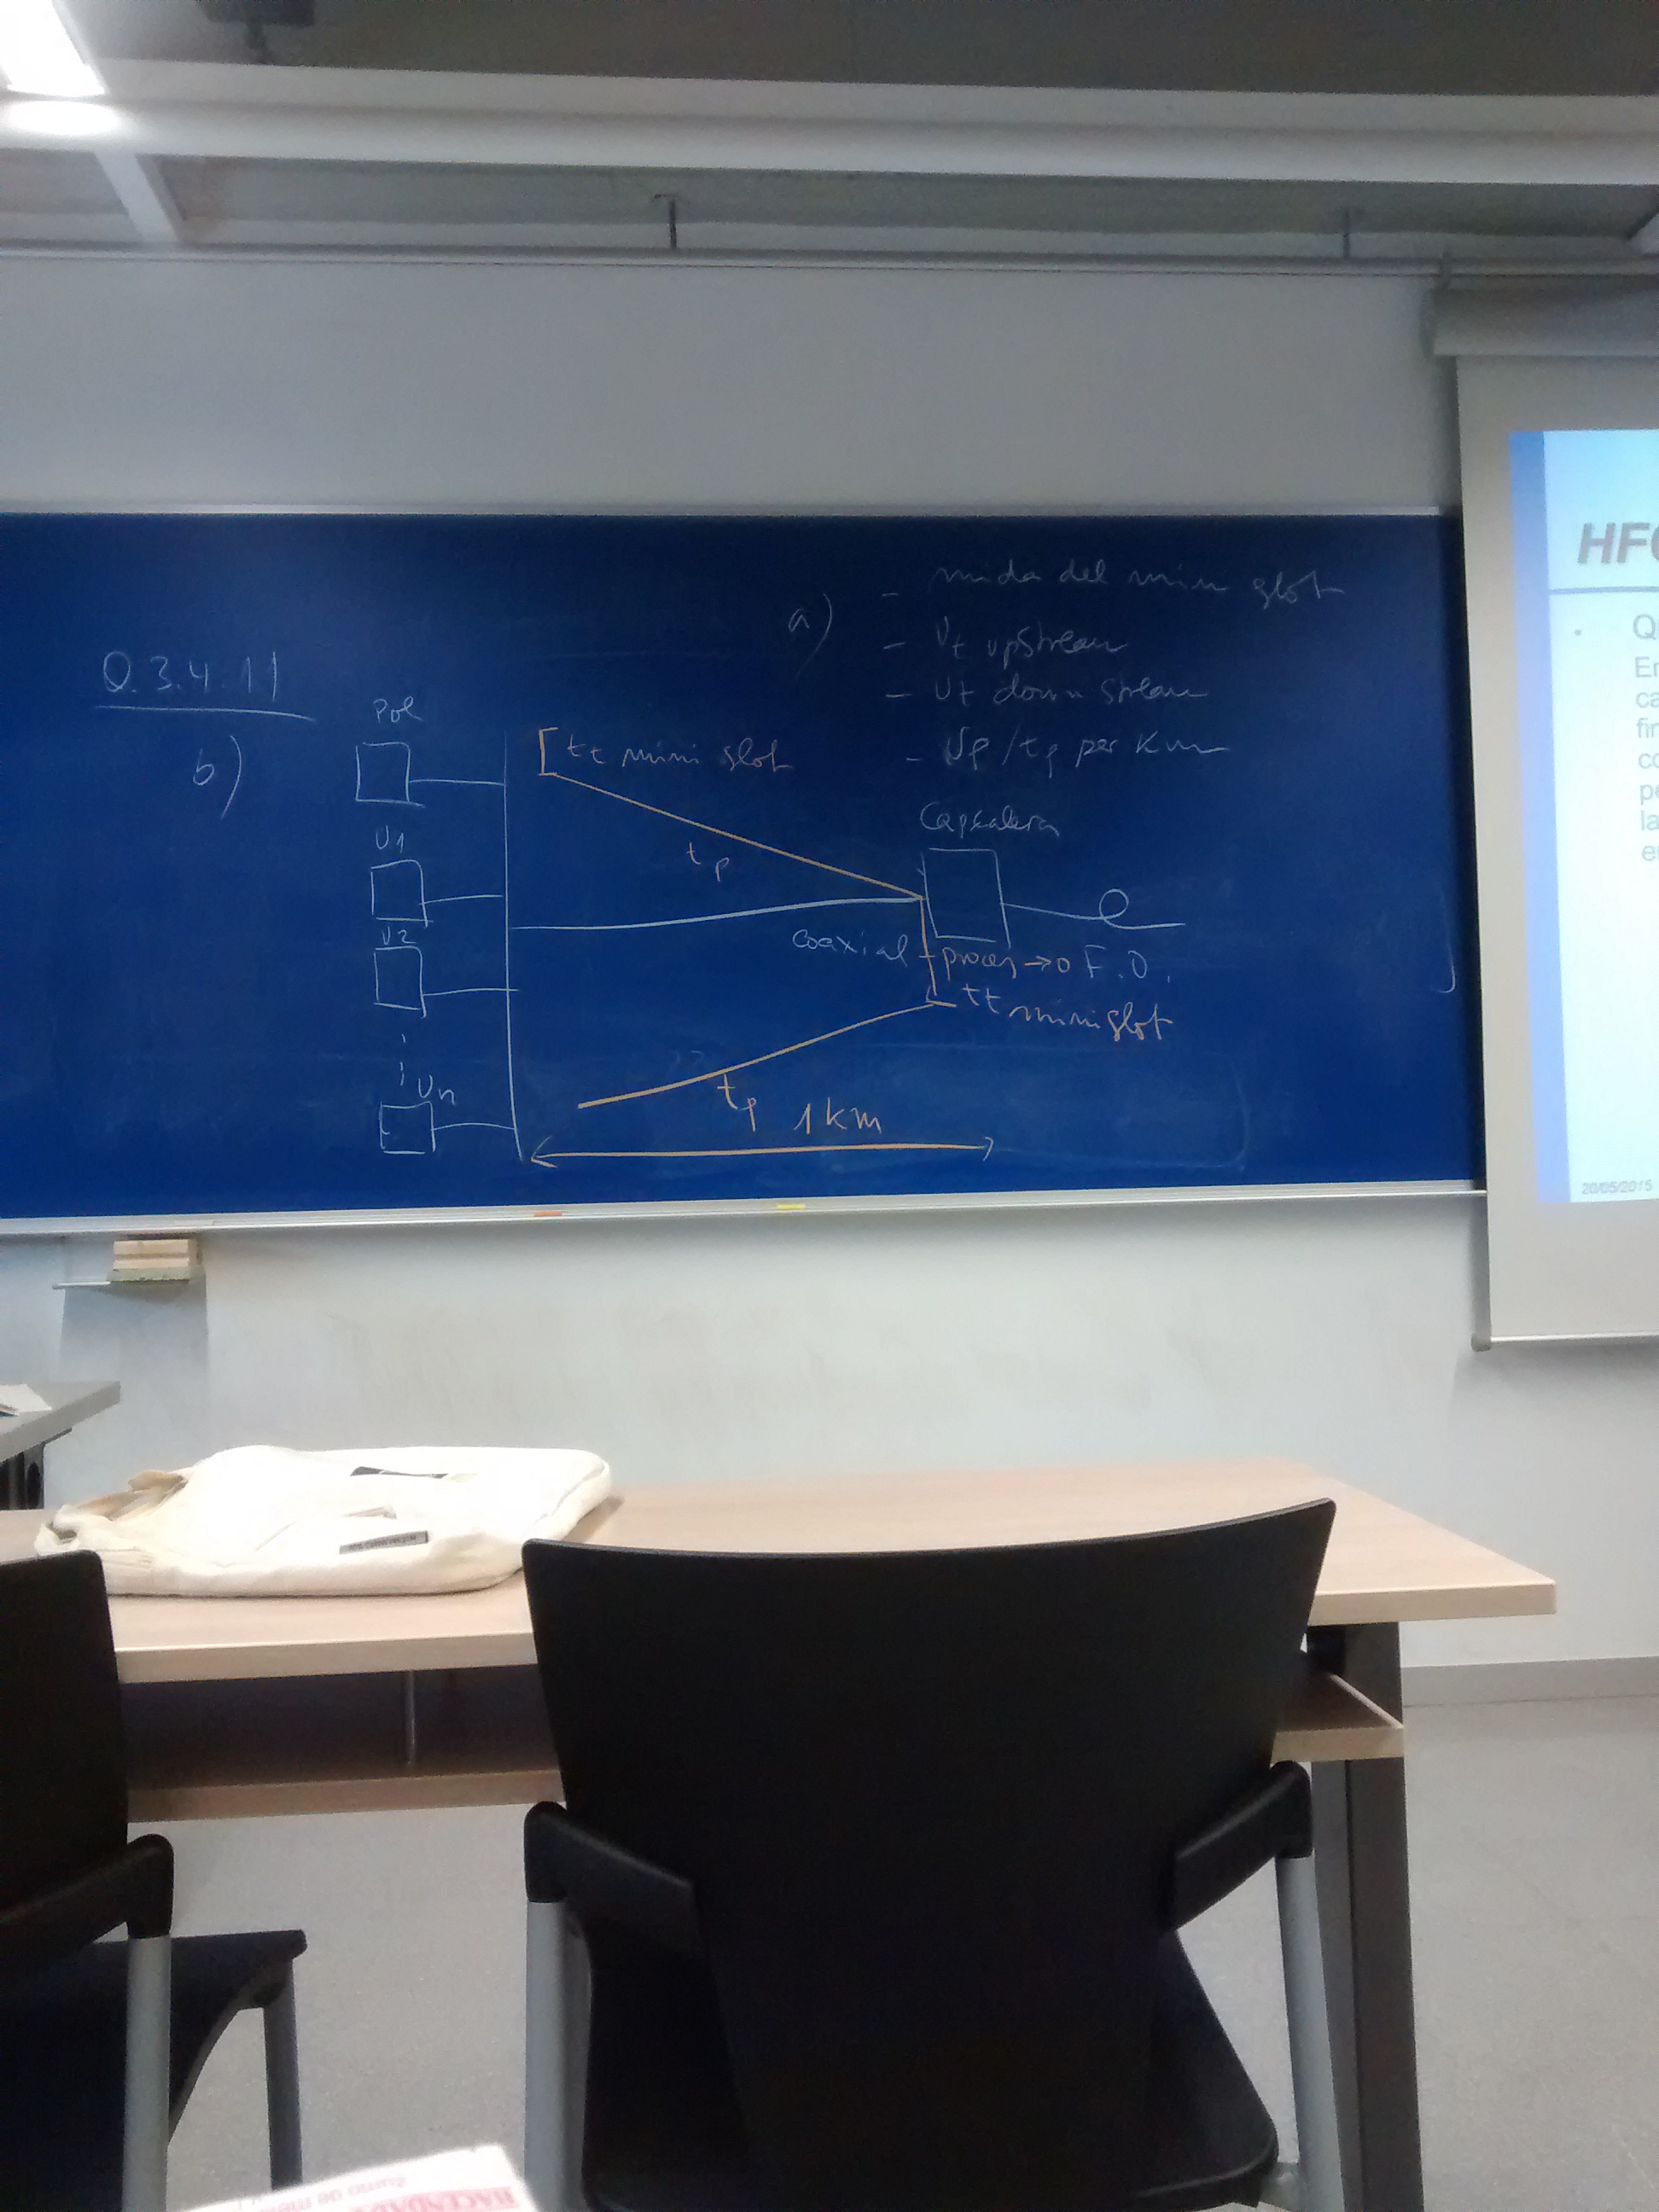 Q.3.4.11
a)
- mida del mini slot
- Vt upstream
- Vt downstream
- Vp/tp per Km
b)
Pol
U1
U2
Un
[tt mini slot
tp
Capçalera
coaxial
proces → F.O.
tt minislot
tp
1 km
HF
Q
E
ca
fi
co
pe
la
e
20/05/2015
HACENDADO